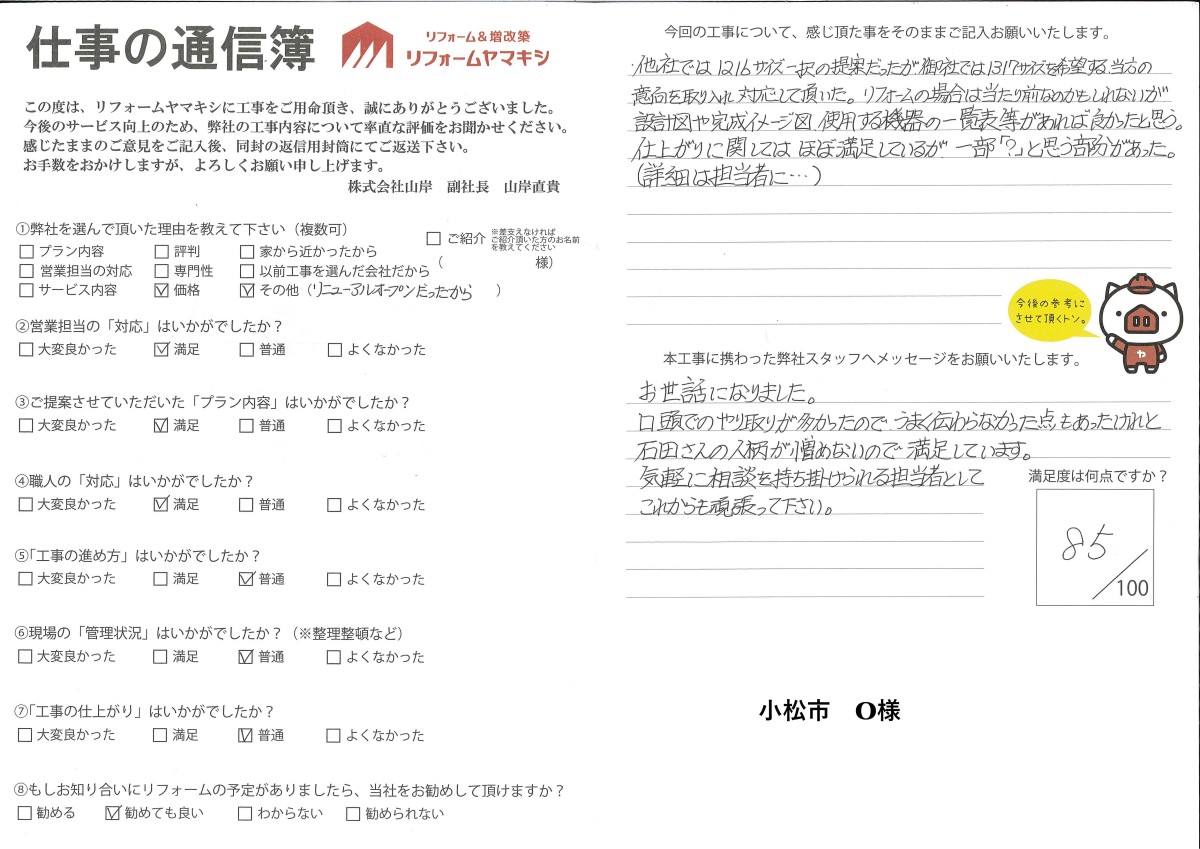 仕事の通信簿
リフォーム&増改築
リフォームヤマキシ
この度は、リフォームヤマキシに工事をご用命頂き、誠にありがとうございました。
今後のサービス向上のため、弊社の工事内容について率直な評価をお聞かせください。
感じたままのご意見をご記入後、同封の返信用封筒にてご返送下さい。
お手数をおかけしますが、よろしくお願い申し上げます。
株式会社山岸　副社長　山岸直貴
①弊社を選んで頂いた理由を教えて下さい（複数可）
□プラン内容 □評判 □家から近かったから □ご紹介 ※差支えなければ
ご紹介頂いた方のお名前
を教えてください
□営業担当の対応 □専門性 □以前工事を選んだ会社だから （　　　様）
□サービス内容 ☑価格 ☑その他（リニューアルオープンだったから　）
②営業担当の「対応」はいかがでしたか？
□大変良かった ☑満足 □普通 □よくなかった
③ご提案させていただいた「プラン内容」はいかがでしたか？
□大変良かった ☑満足 □普通 □よくなかった
④職人の「対応」はいかがでしたか？
□大変良かった ☑満足 □普通 □よくなかった
⑤「工事の進め方」はいかがでしたか？
□大変良かった □満足 ☑普通 □よくなかった
⑥現場の「管理状況」はいかがでしたか？（※整理整頓など）
□大変良かった □満足 ☑普通 □よくなかった
⑦「工事の仕上がり」はいかがでしたか？
□大変良かった □満足 ☑普通 □よくなかった
⑧もしお知り合いにリフォームの予定がありましたら、当社をお勧めして頂けますか？
□勧める ☑勧めても良い □わからない □勧められない
今回の工事について、感じ頂た事をそのままご記入お願いいたします。
・他社では1216サイズ一択の提案だったが御社では1317サイズを希望する当方の
意向を取り入れ対応して頂いた。リフォームの場合は当たり前なのかもしれないが
設計図や完成イメージ図、使用する機器の一覧表等があれば良かったと思う。
仕上がりに関してはほぼ満足しているが、一部「？」と思う部分があった。
（詳細は担当者に…）
今後の参考に
させて頂くトン。
ヤ
本工事に携わった弊社スタッフへメッセージをお願いいたします。
お世話になりました。
口頭でのやり取りが多かったので、うまく伝わらなかった点もあったけれど
石田さんの人柄が憎めないので満足しています。
気軽に相談を持ち掛けられる担当者として
これからも頑張って下さい。
満足度は何点ですか？
85/100
小松市　O様